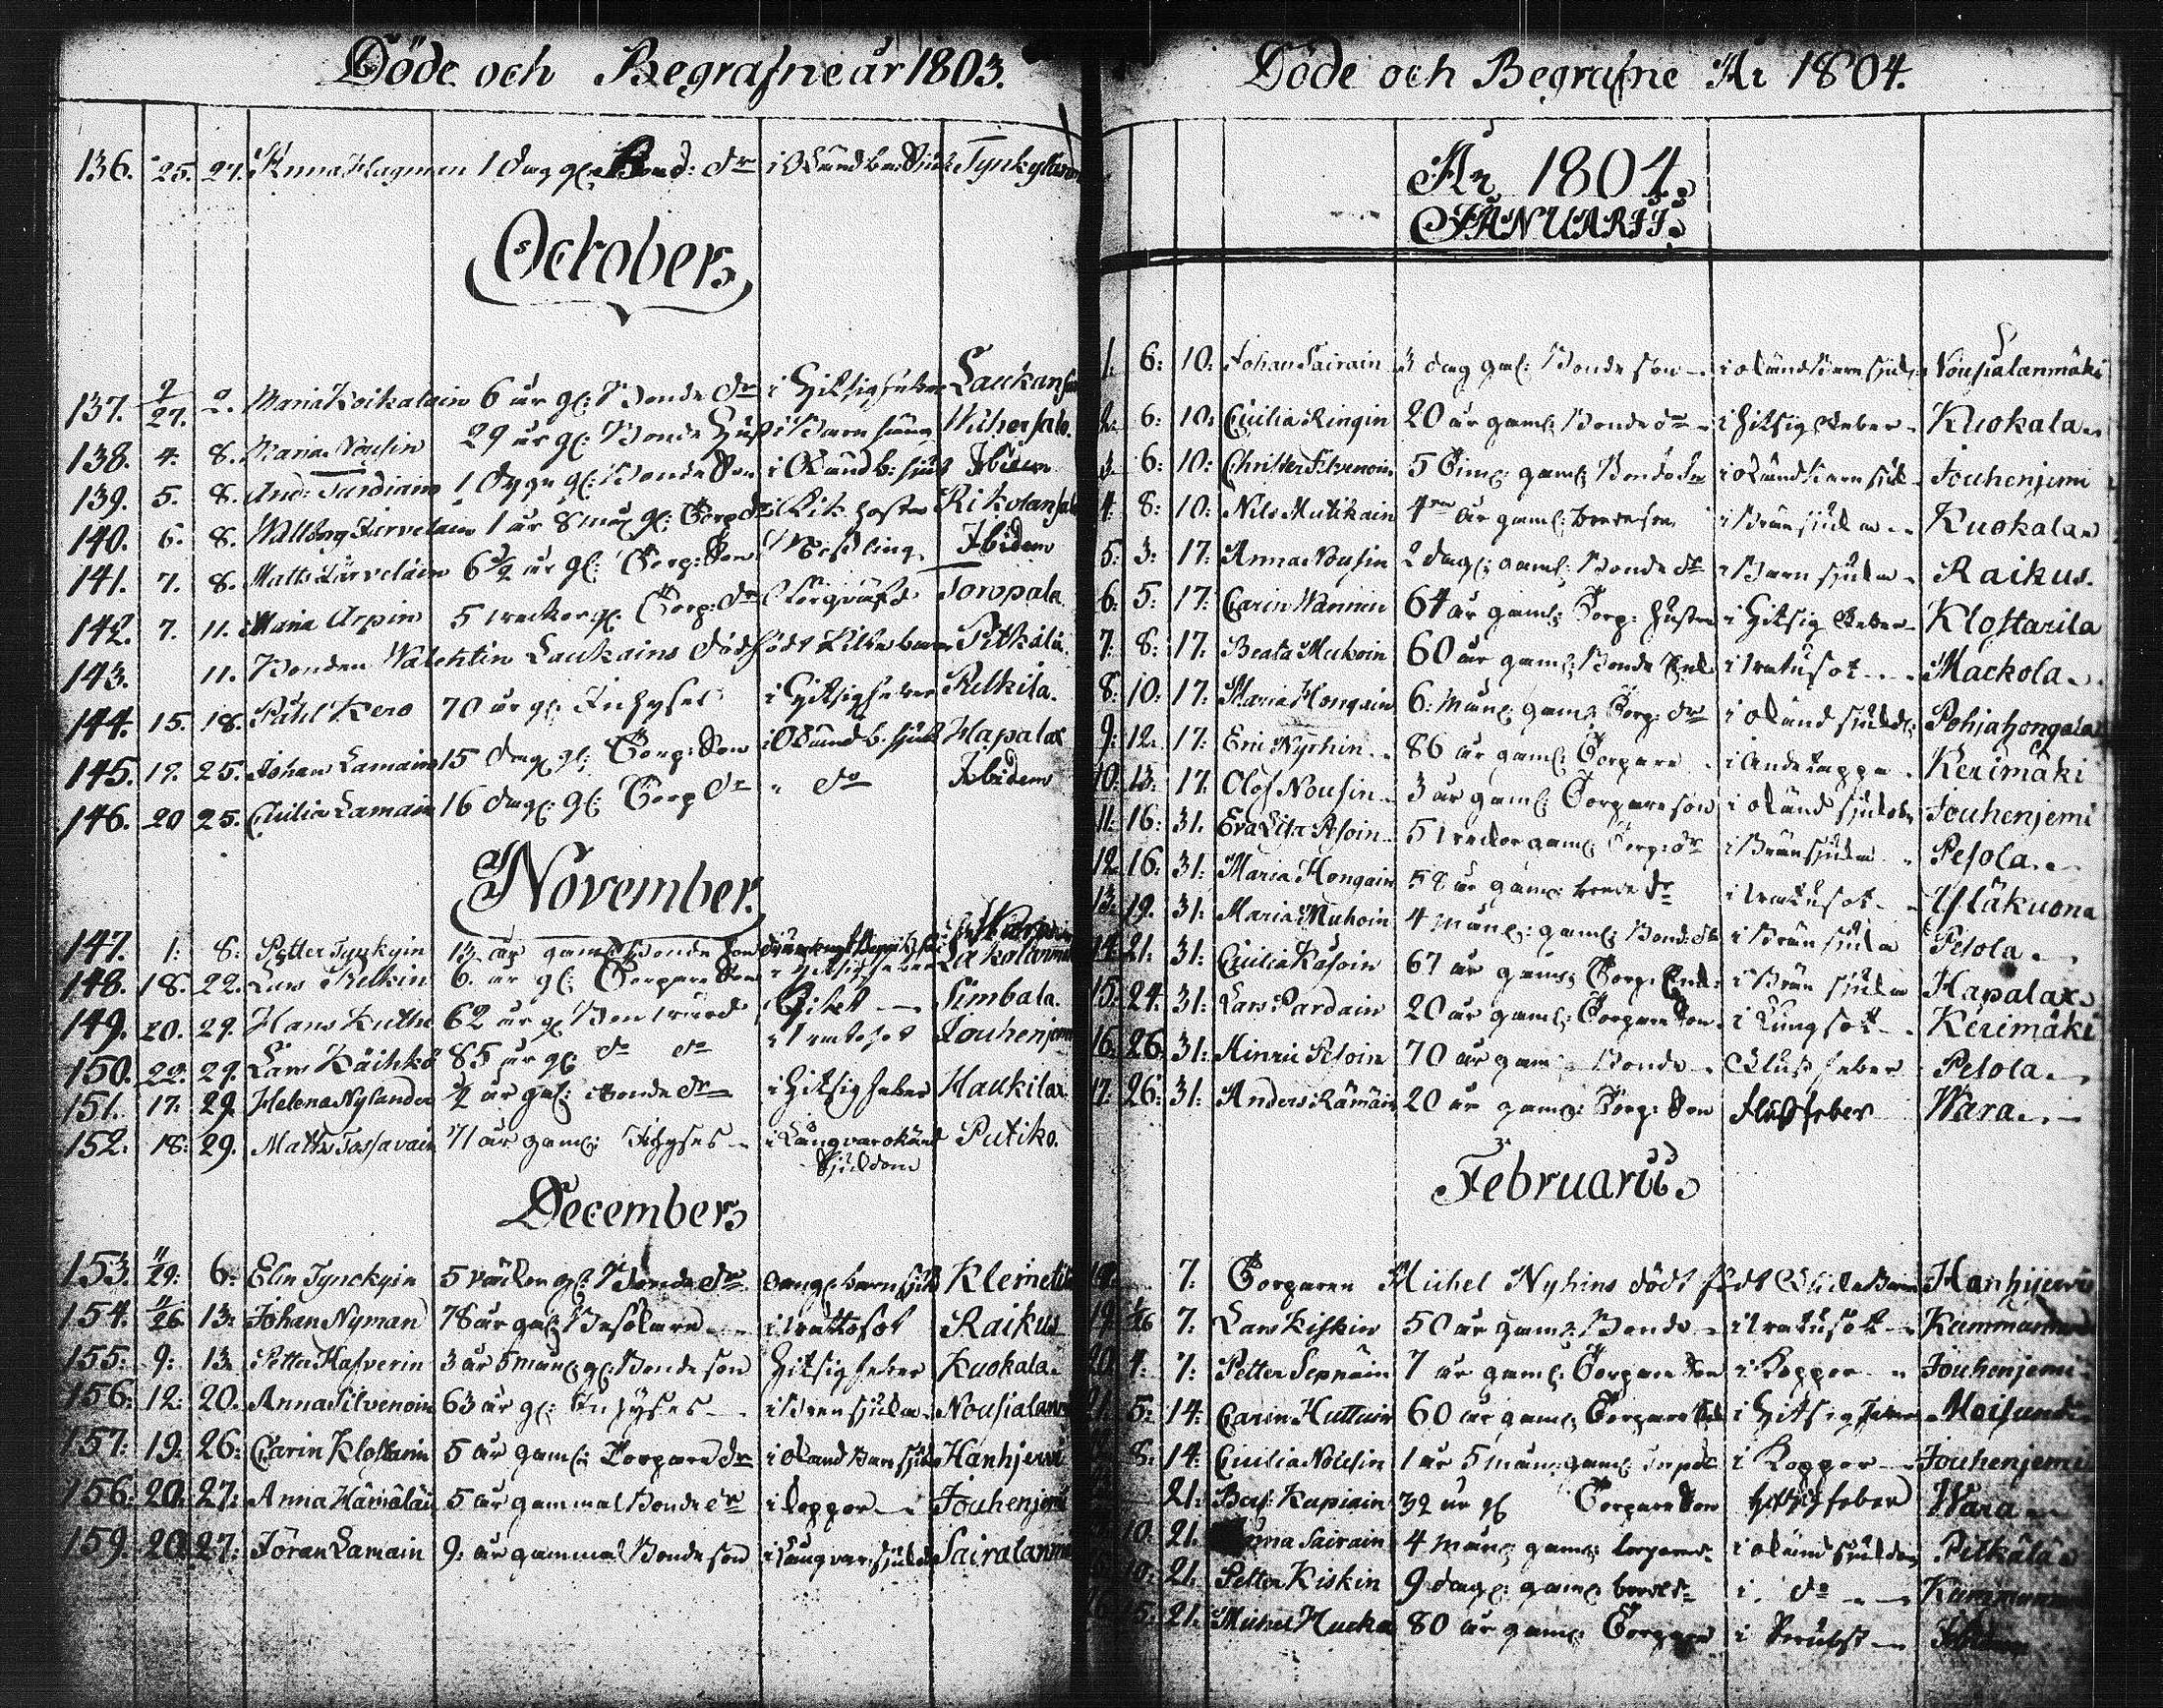 Döde och Begrafne år 1803.
136. 25. 27. Anna Hagman 1 dag gl: Bond: dr i Okänd barn Sjuk Tynkylä
October
137. 9/27. 2. Maria Koikalain 6 år gl: Bonde dr i Hitsig feber Laukan
138. 4. 8. Maria Nousin 29 år gl: Bonde Hust i Barnsäng
139. 5. 8. And: Turdiain 1 dygn gl: Bonde Son i Okänd b: sjuk Ibidem
140. 6. 8. Wallborg Järveläin 1 år 8 mån gl: Torp dr i Kikhosta Rikolansa
141. 7. 8. Matts Järveläin 6 1/2 år gl: Torp: Son Messling Ibidem
142. 7. 11. Maria Arpin 5 weckor gl: Torp: dr Toropala
143. 11. Bonden Walentin Laukains dödfödt Lilla barn Pitkälä
144. 15. 18. Påhl Kero 70 år gl: Inhyses i Hitsig feber Relkilä.
145. 19. 25. Johan Lamain 15 dag gl: Torp: Son i Okänd b: sjuk Hapalax
146. 20 25. Cecilia Lamain 16 dag: gl: Torp dr " do Ibidem
November.
147. 1: 8: Petter Tynkyin 13 år gam: Bonde Son
148. 18. 22. Lars Relkin 6 år gl: Torpare Son i Hitsig feber
149. 20. 29. Hans Kuthe 62 år gl: Simbala.
150. 22. 29. Lars Käihkö 85 år gl: do do Jouhenjemi
151. 17: 29. Helena Nylander 1/2 år gal: Bonde dr i Hitsig feber Haukilax
152. 18: 29. Matts Tossavain 71 år gaml: Ihyses i Långvar okänd Putiko.
Sjukdom
December
153. 11/29: 6: Elin Tynckyin 5 väckor gl: Bonde dr barnsjuk Klemeti
154. 11/26 13: Johan Nyman 78 år gal: i wattosot Raikus
155: 9: 13. Petter Hafverin 3 år 5 mån: gl: Bonde son Hitsig feber Kuokala.
156: 12: 20. Anna Silvenoin 63 år gl: Inhyses i Bren sjukd Nousialan
157: 19: 26: Carin Klostarin 5 år gaml: Torpare dr i okänd Barnsjuk Hanhijervi
156: 20: 27: Anna Hämäläin 5 år gammal Bonde dr i koppor Jouhenjemi
159. 20. 27: Jöran Lamain 9: år gammal Bonde son i Långvar: sjukd Sairalanm
Döde och Begrafne År 1804.
År 1804.
JANUARII.
1. 6: 10: Johan Sairain 3 dag gal: Bonde son i okänd barn sjukd Nousialanmäki
2. 6: 10: Cecilia Ringin 20 år gaml: Bonde dr i hitsig feber Kuokala
3 6: 10: Christer Silvenoin 5 Tim: gaml: Bonde Son i okänd barn sjuk Jouhenjemi
4. 8: 10: Nils Mutikain 4 år gaml: bonde son i Brän sjukd Kuokala
5: 3: 17: Anna Nousin 2 dag: gaml: Bonde dr i Barn sjukd Raikus.
6: 5: 17: Carin Wännin 64 år gaml: Torp: Hustru i Hitsig feber Klostarila
7: 8: 17: Beata Muhoin 60 år gaml: Bonde Enk i watusot Mackola
8: 10: 17: Maria Hongain 6: Mån: gaml: Torp: dr i okänd sjukd: Pohjahongala
9: 12. 17: Eric Nyrhin 86 år gaml: Torpare i Andetäppa Kerimäki
10: 13: 17. Olof Nousin 3 år gaml: Torpare son i okänd sjukdo Jouhenjemi
11: 16: 31. Eva Lisa Pesoin 5 weckor gaml: Torp: dr i Brän sjukd Pesola
12. 16: 31: Maria Hongain 58 år gaml: bonde dr i watusot Yläkuona
13: 19. 31: Maria Muhoin 4 mån: gaml: Bond: dr i Brän sjukd Pesola
14: 21. 31: Cecilia Kasoin 67 år gaml: Torp: Enk: i Brän sjukd Hapalax
15: 24: 31: Lars Pardain 20 år gaml: Torpare Son i Lungsot Kerimäki
16: 26: 31: Hinric Pesoin 70 år gam: Bonde Fluss feber Pesola
17: 26: 31: Anders Rämäin 20 år gaml: Torp: Son Flussfeber Wara
Februarii
18. 7. Torparen Michel Nyhins dödt födt Lilla Barn Hanhijervi
19. 1/26 7. Lars Kiskin 50 år gaml: Bonde i watusott
20. 4: 7: Petter Sepnäin 7 år gaml: Torpare Son i Koppor Jouhenjemi
21. 5: 14: Carin Huttuin 60 år gaml: Torpare i Hitsig feber Moisundi
8: 14: Cecilia Nousin 1 år 5 mån: gaml: i Koppor Jouhenjemi
21: Kupiain 32 år gl Torpare Son hitsig feber Wara
10: 21. Anna Sairain 4 Mån: gaml: torpared: i okänd sjukdom Pitkälä
10: 21. Petter Kiskin 9 dag: gaml: i do
15: 21. Michel Hucka 80 år gaml: Torpare i Ibidem